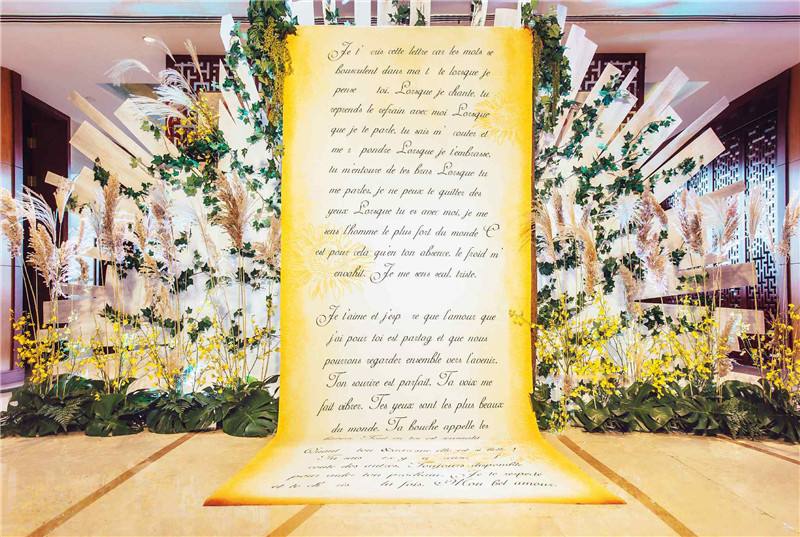 Je t' cris cette lettre car les mots se
bousculent dans ma t te lorsque je
pense toi. Lorsque je chante, tu
reprends le refrain avec moi Lorsque
que je te parle, tu sais m' couter et
me r pondre Lorsque je t'embrasse,
tu m'entoure de tes bras Lorsque tu
me parles, je ne peux te quitter des
yeux Lorsque tu es avec moi, je me
sens l'homme le plus fort du monde C
est pour cela qu'en ton absence, le froid m'
envahit. Je me sens seul, triste.
Je t'aime et j'esp re que l'amour que
j'ai pour toi est partag et que nous
pourrons regarder ensemble vers l'avenir.
Ton sourire est parfait. Ta voix me
fait vibrer. Tes yeux sont les plus beaux
du monde. Ta bouche appelle les
des autres. Toujours disponible
Je te respecte
et te la fois. Mon bel amour.